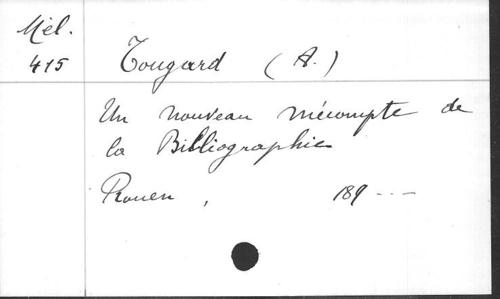 Mél.
415
Tougard (A.)
Un nouveau mécompte de
la Bibliographie
Rouen, 189---